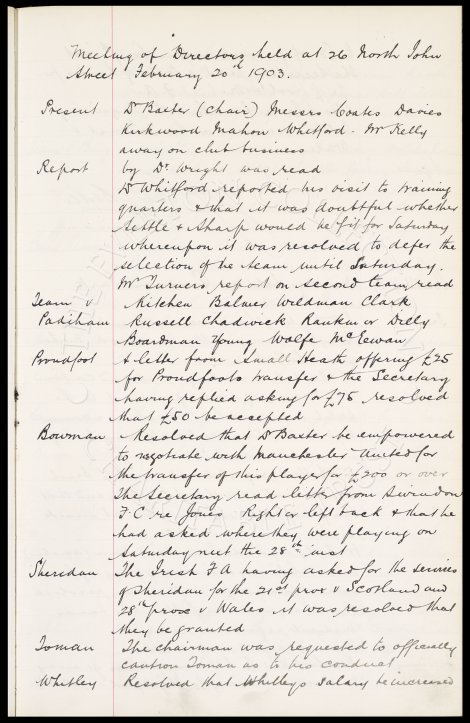 Meeting of Directors held at 26 North John
Street February 20th 1903.
Present Dr Baxter (Chair) Messrs Coates Davies
Kirkwood Mahon Whitford - Mr Kelly
away on club business
Report by Dr Wright was read
Dr Whitford reported his visit to training
quarters & that it was doubtful whether
Settle & Sharp would be fit for Saturday
whereupon it was resolved to defer the
selection of the team until Saturday.
Mr Turners report on second team read
Team v Kitchen Balmer Wildman Clark
Padiham Russell Chadwick Rankine Dilly
Boardman Young Wolfe McEwan
Proudfoot A letter from Small Heath offering £25
for Proudfoots transfer & the Secretary
having replied asking for £75 resolved
that £50 be accepted
Bowman Resolved that Dr Baxter be empowered
to negotiate with Manchester United for
the transfer of this player for £200 or over
The Secretary read letter from Swindon
F.C re Jones Right or left back & that he
had asked where they were playing on
Saturday next the 28th inst
Sheridan The Irish F A having asked for the services
of Sheridan for the 21st prox v Scotland and
28th prox v Wales it was resolved that
they be granted
Toman The Chairman was requested to officially
caution Toman as to his conduct
Whitley Resolved that Whitleys salary be increased